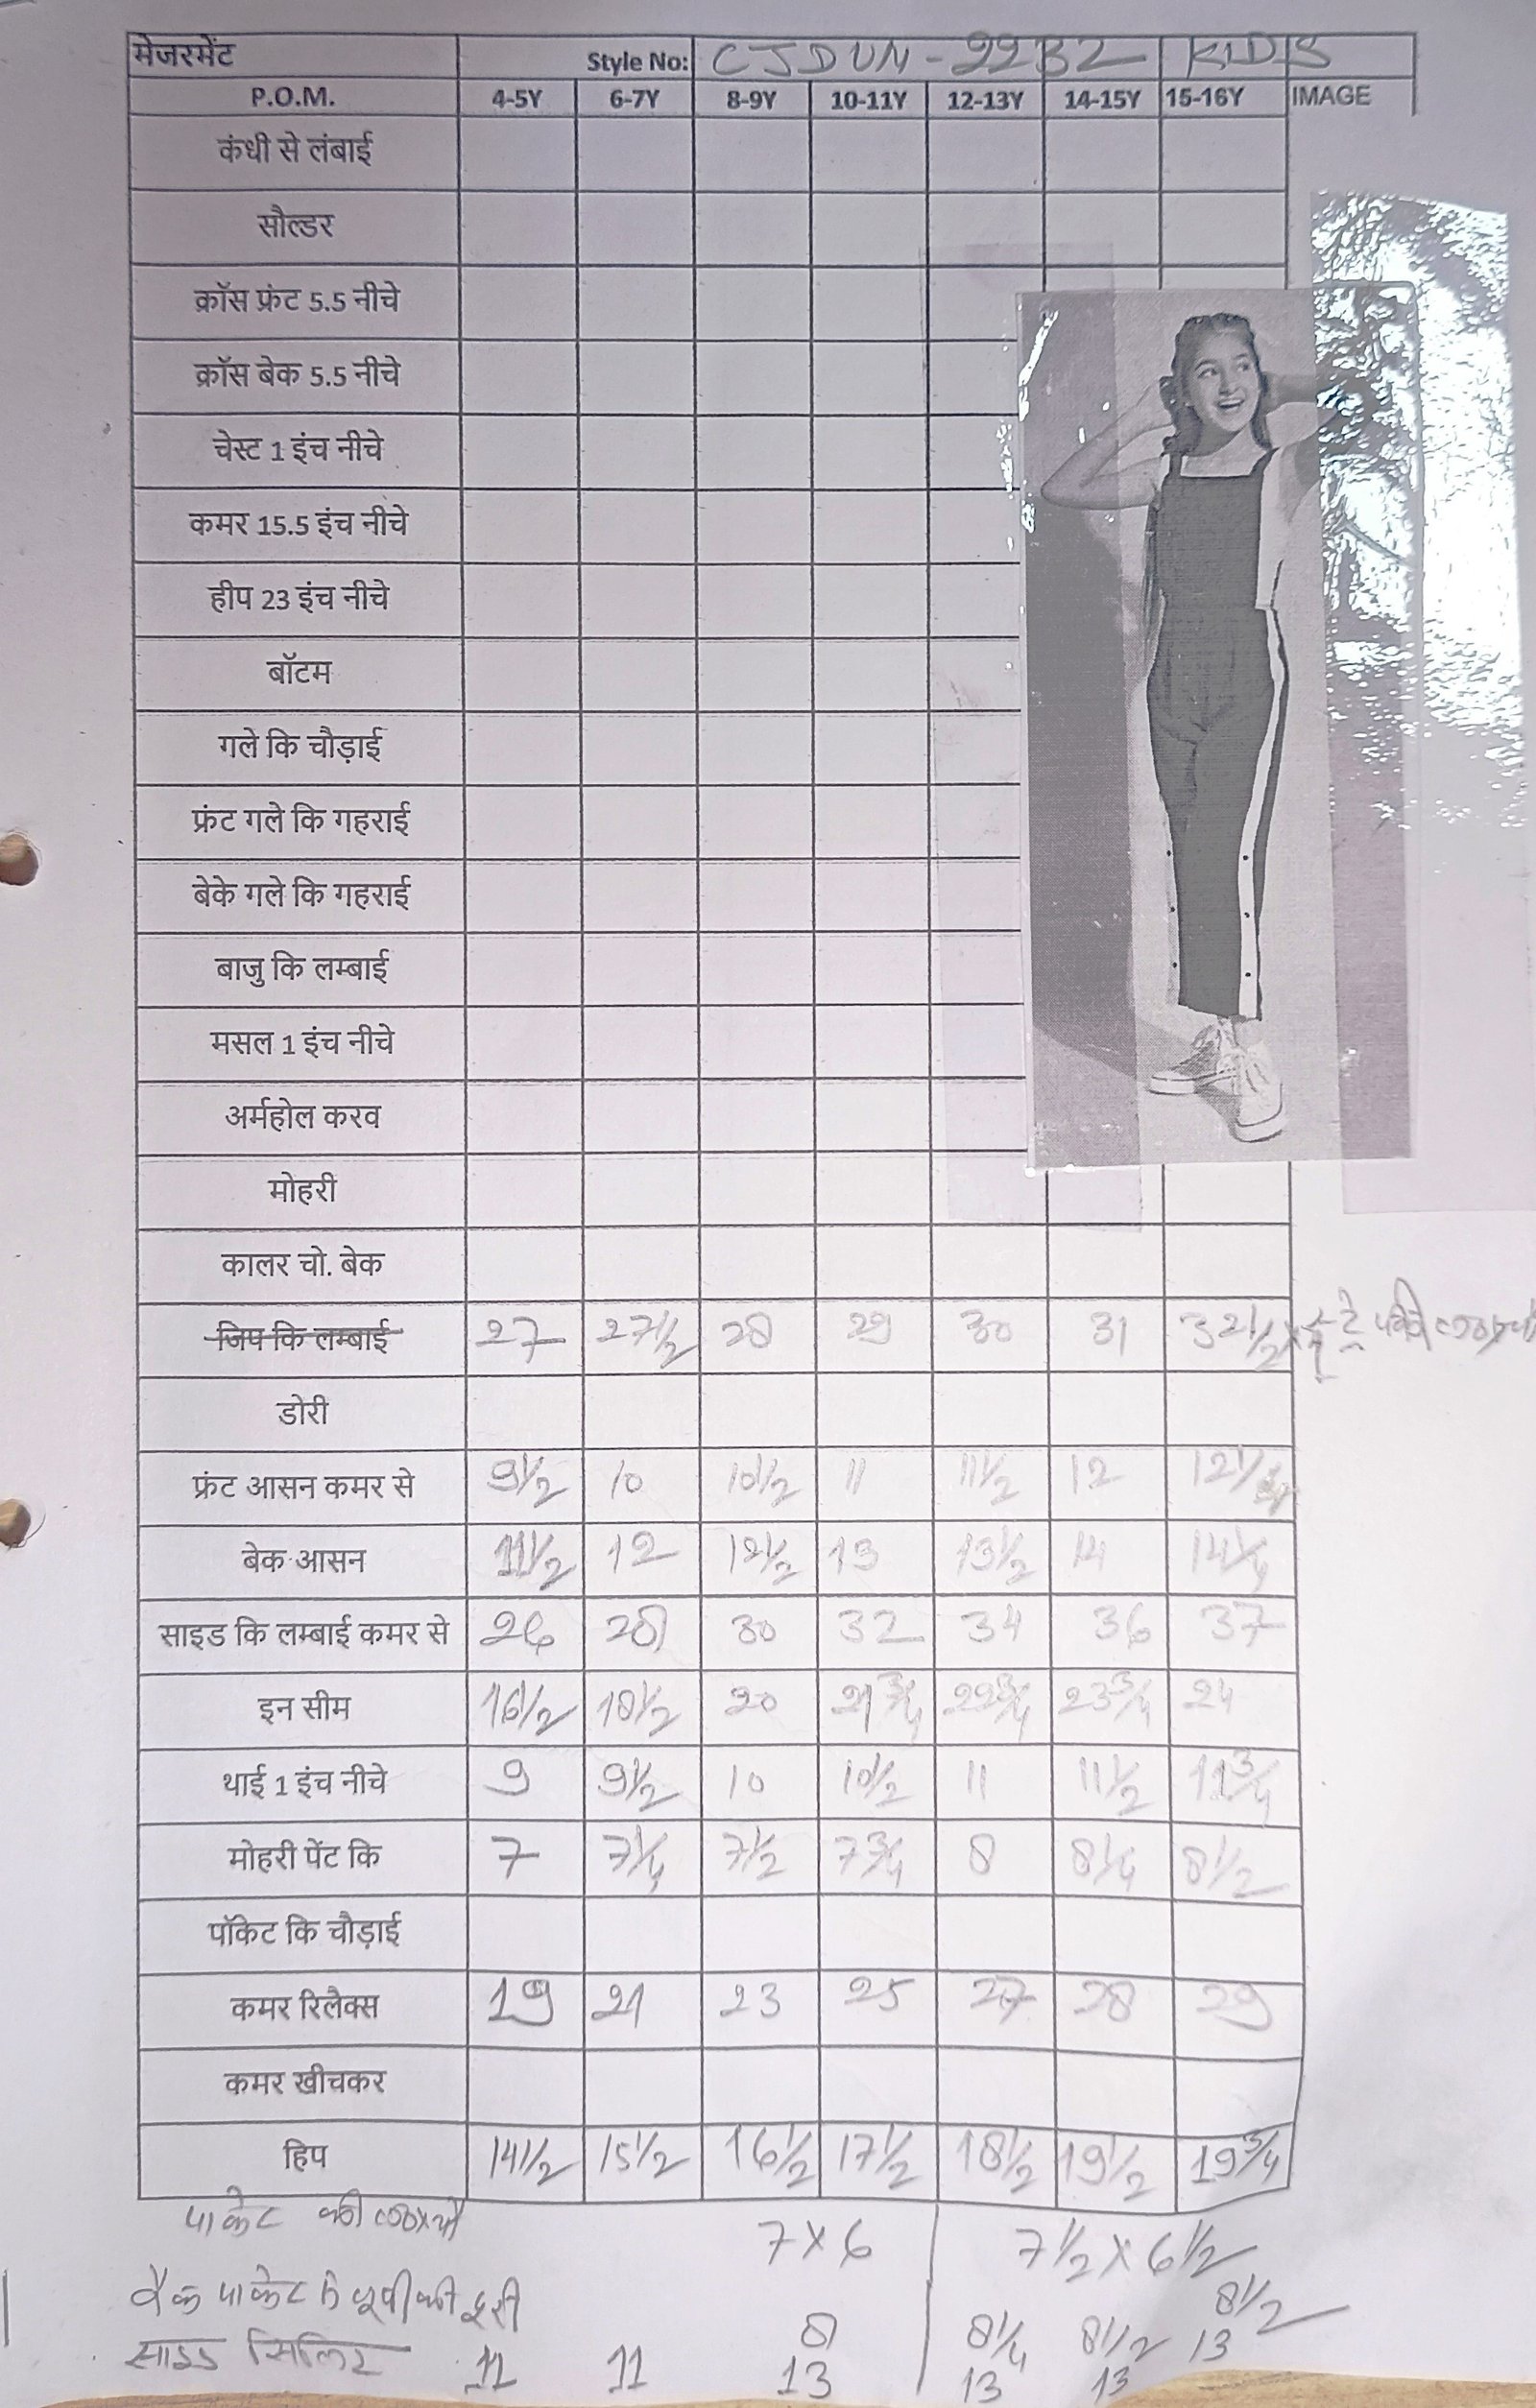 मेजरमेंट Style No: CJDUN-22B2 KIDS
P.O.M. 4-5Y 6-7Y 8-9Y 10-11Y 12-13Y 14-15Y 15-16Y IMAGE
कंधी से लंबाई
सौल्डर
क्रॉस फ्रंट 5.5 नीचे
क्रॉस बेक 5.5 नीचे
चेस्ट 1 इंच नीचे
कमर 15.5 इंच नीचे
हीप 23 इंच नीचे
बॉटम
गले कि चौड़ाई
फ्रंट गले कि गहराई
बेके गले कि गहराई
बाजु कि लम्बाई
मसल 1 इंच नीचे
अर्महोल करव
मोहरी
कालर चो. बेक
जिप कि लम्बाई 27 27 1/2 28 29 30 31 32 1/2
डोरी
फ्रंट आसन कमर से 9 1/2 10 10 1/2 11 11 1/2 12
बेक आसन 11 1/2 12 12 1/2 13 13 1/2 14 14 1/4
साइड कि लम्बाई कमर से 26 28 30 32 34 36 37
इन सीम 16 1/2 18 1/2 20 21 3/4 22 3/4 23 3/4 24
थाई 1 इंच नीचे 9 9 1/2 10 10 1/2 11 11 1/2 11 3/4
मोहरी पेंट कि 7 7 1/4 7 1/2 7 3/4 8 8 1/4 8 1/2
पॉकेट कि चौड़ाई
कमर रिलैक्स 19 21 23 25 27 28 29
कमर खीचकर
हिप 14 1/2 15 1/2 16 1/2 17 1/2 18 1/2 19 1/2 19 3/4
पाकेट की 7 x 6 7 1/2 x 6 1/2
बैक पाकेट की दूरी 8 8 1/4 8 1/2 8 1/2
साइड सिलिट 11 11 13 13 13 13